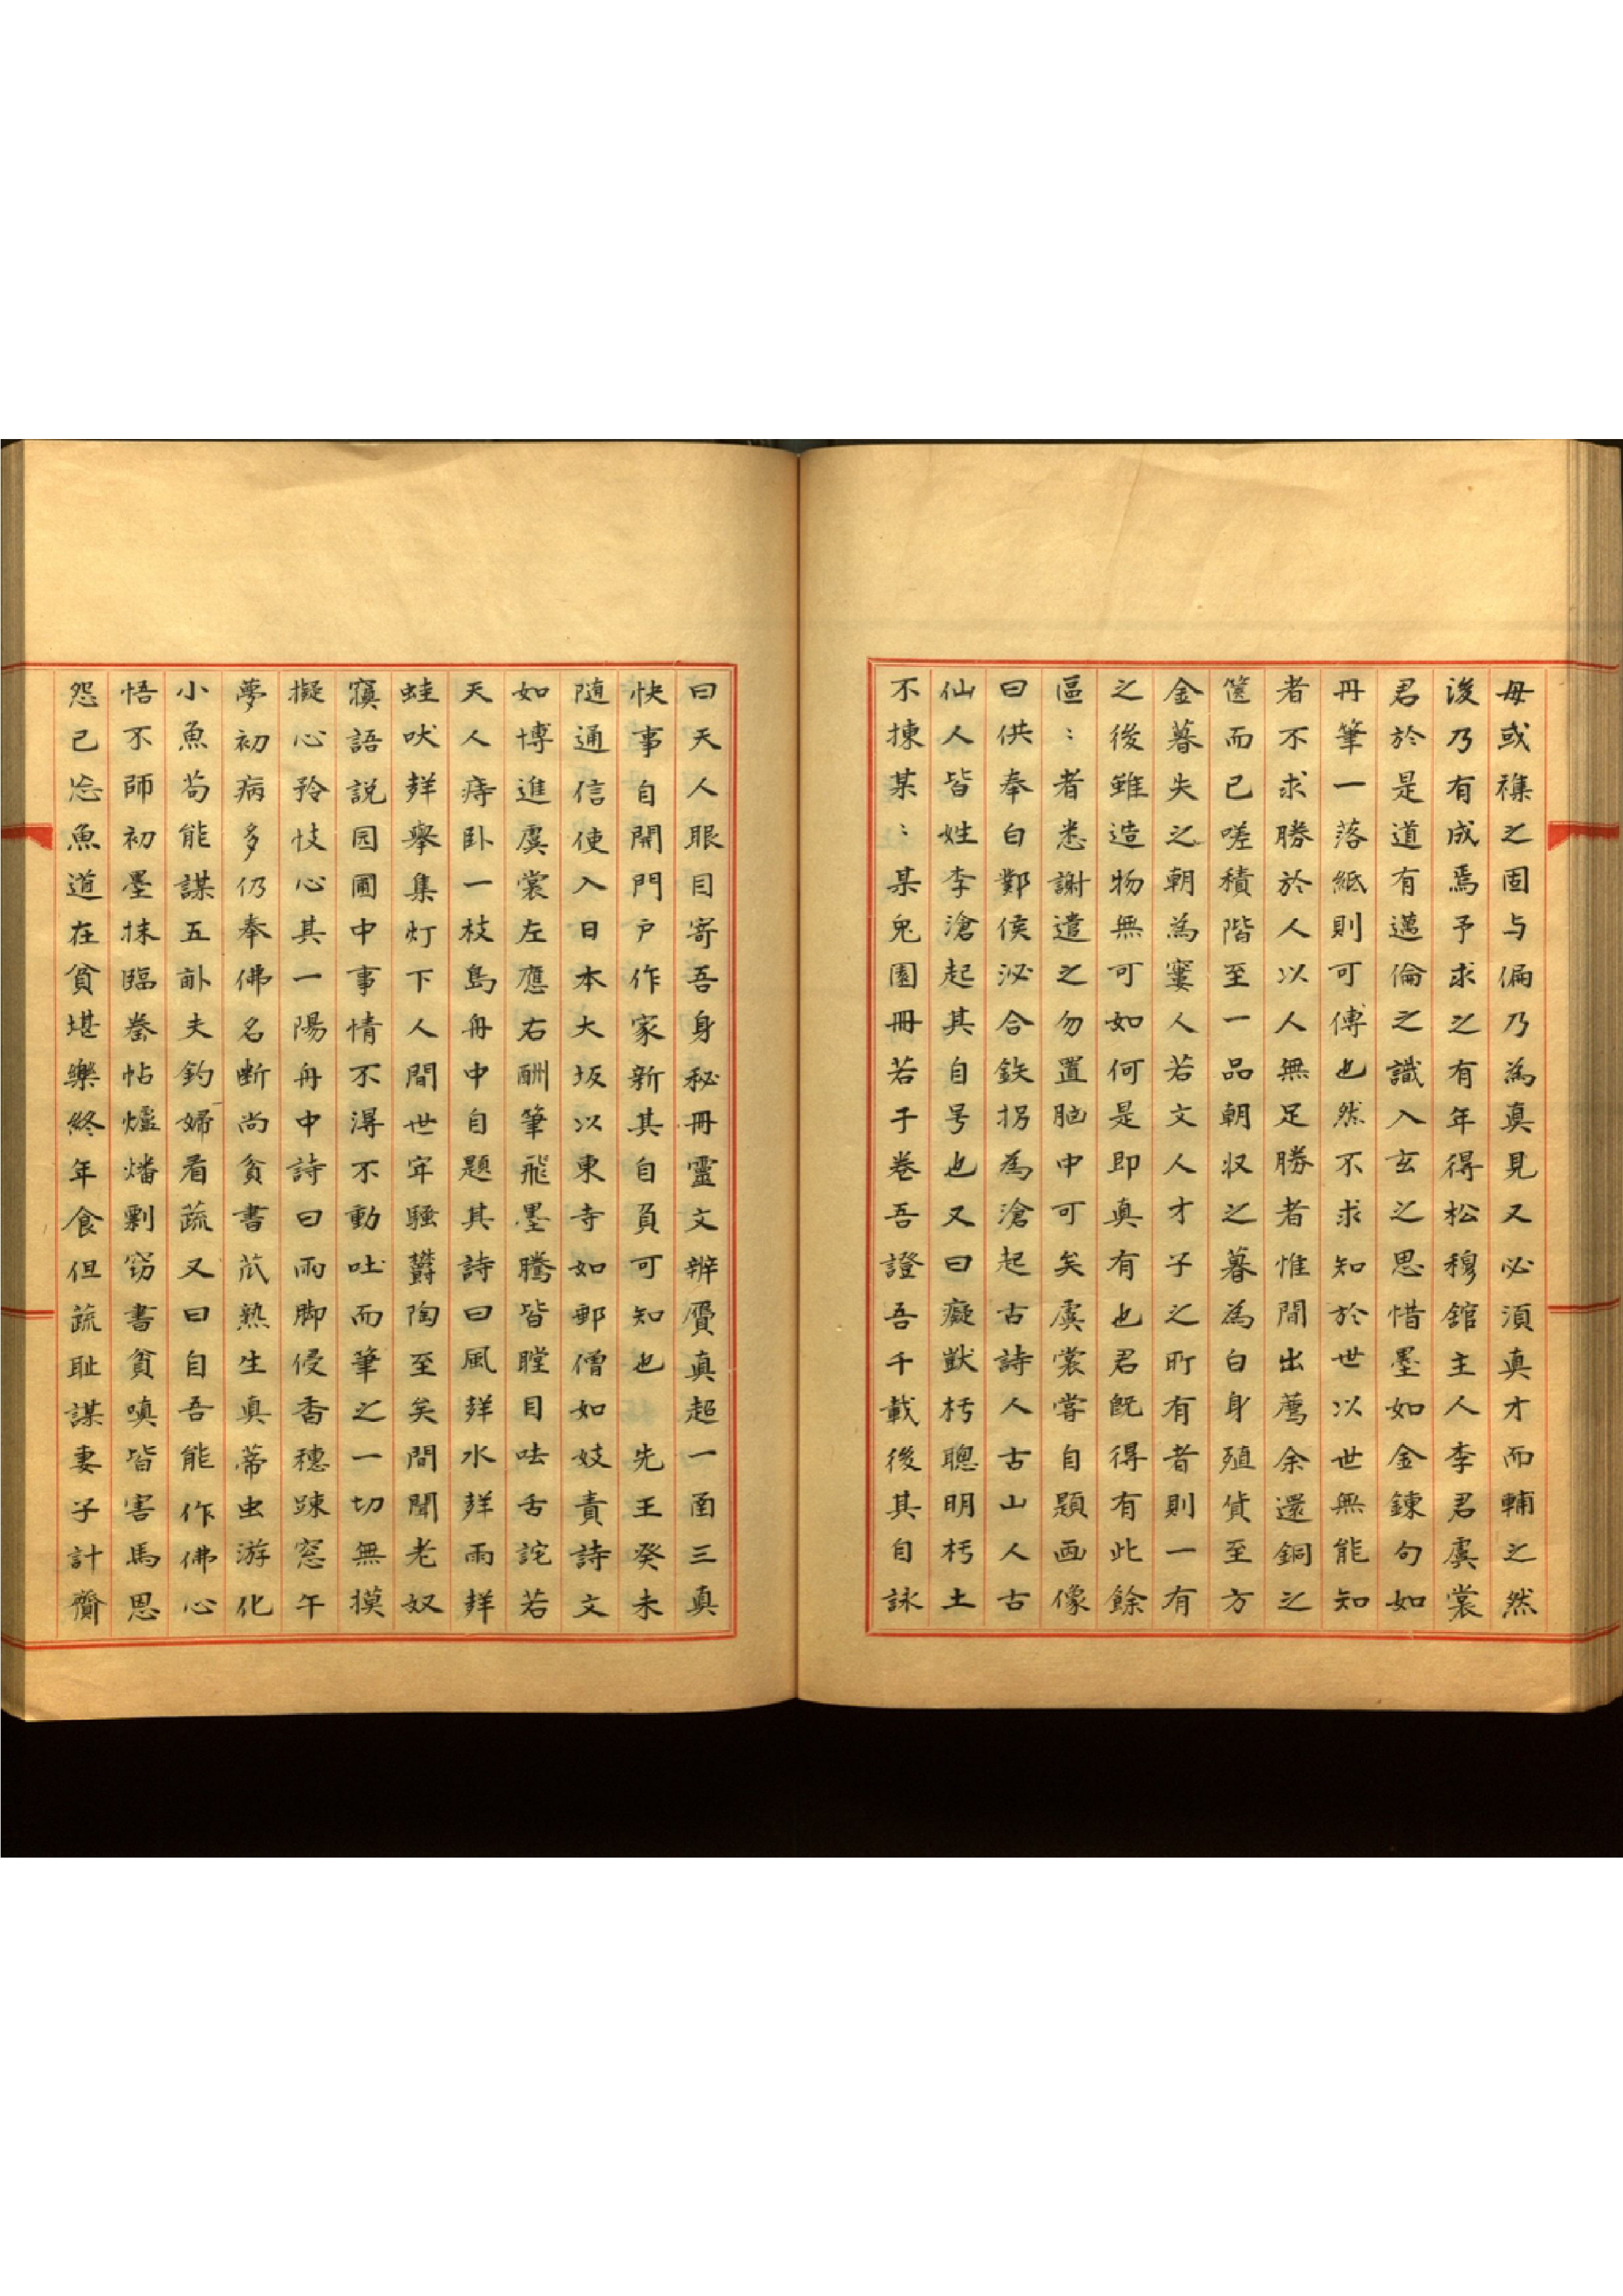 毋或襍之固与偏乃為真見又必須真才而輔之然
後乃有成焉予求之有年得松穆舘主人李君虞裳
君於是道有邁倫之識入玄之思惜墨如金鍊句如
丹筆一落紙則可傳也然不求知於世以世無能知
者不求勝於人以人無足勝者惟間出薦余還錮之
篋而已嗟積階至一品朝収之暮為白身殖貨至方
金暮失之朝為窶人若文人才子之所有者則一有
之後雖造物無可如何是即真有也君既得有此餘
區〻者悉謝遣之勿置胸中可矣虞裳嘗自題画像
曰供奉白鄴侯泌合鉄拐為滄起古詩人古山人古
仙人皆姓李滄起其自号也又曰癡獃朽聰明朽土
不揀某〻某兔園冊若干卷吾證吾千載後其自詠
曰天人眼目寄吾身秘冊靈文辨贋真超一圅三真
快事自開門戶作家新其自負可知也　先王癸未
随通信使入日本大坂以東寺如郵僧如妓責詩文
如博進虞裳左應右酬筆飛墨騰皆瞠目呿舌詫若
天人痔卧一枝島舟中自題其詩曰風㨾水㨾雨㨾
蛙吠㨾擧集灯下人間世牢騷欝陶至矣間聞老奴
寱語説园圃中事情不淂不動吐而筆之一切無摸
擬心矜忮心其一陽舟中詩曰雨脚侵香穗踈窓午
夢初病多仍奉佛名断尚貧書苽熟生真蒂虫游化
小魚苟能謀五畝夫釣婦看蔬又曰自吾能作佛心
悟不師初墨抹臨拳帖爐燔剽窃書貧嗔皆害馬思
怨已忘魚道在貧堪樂終年食但蔬耻謀妻子計齎